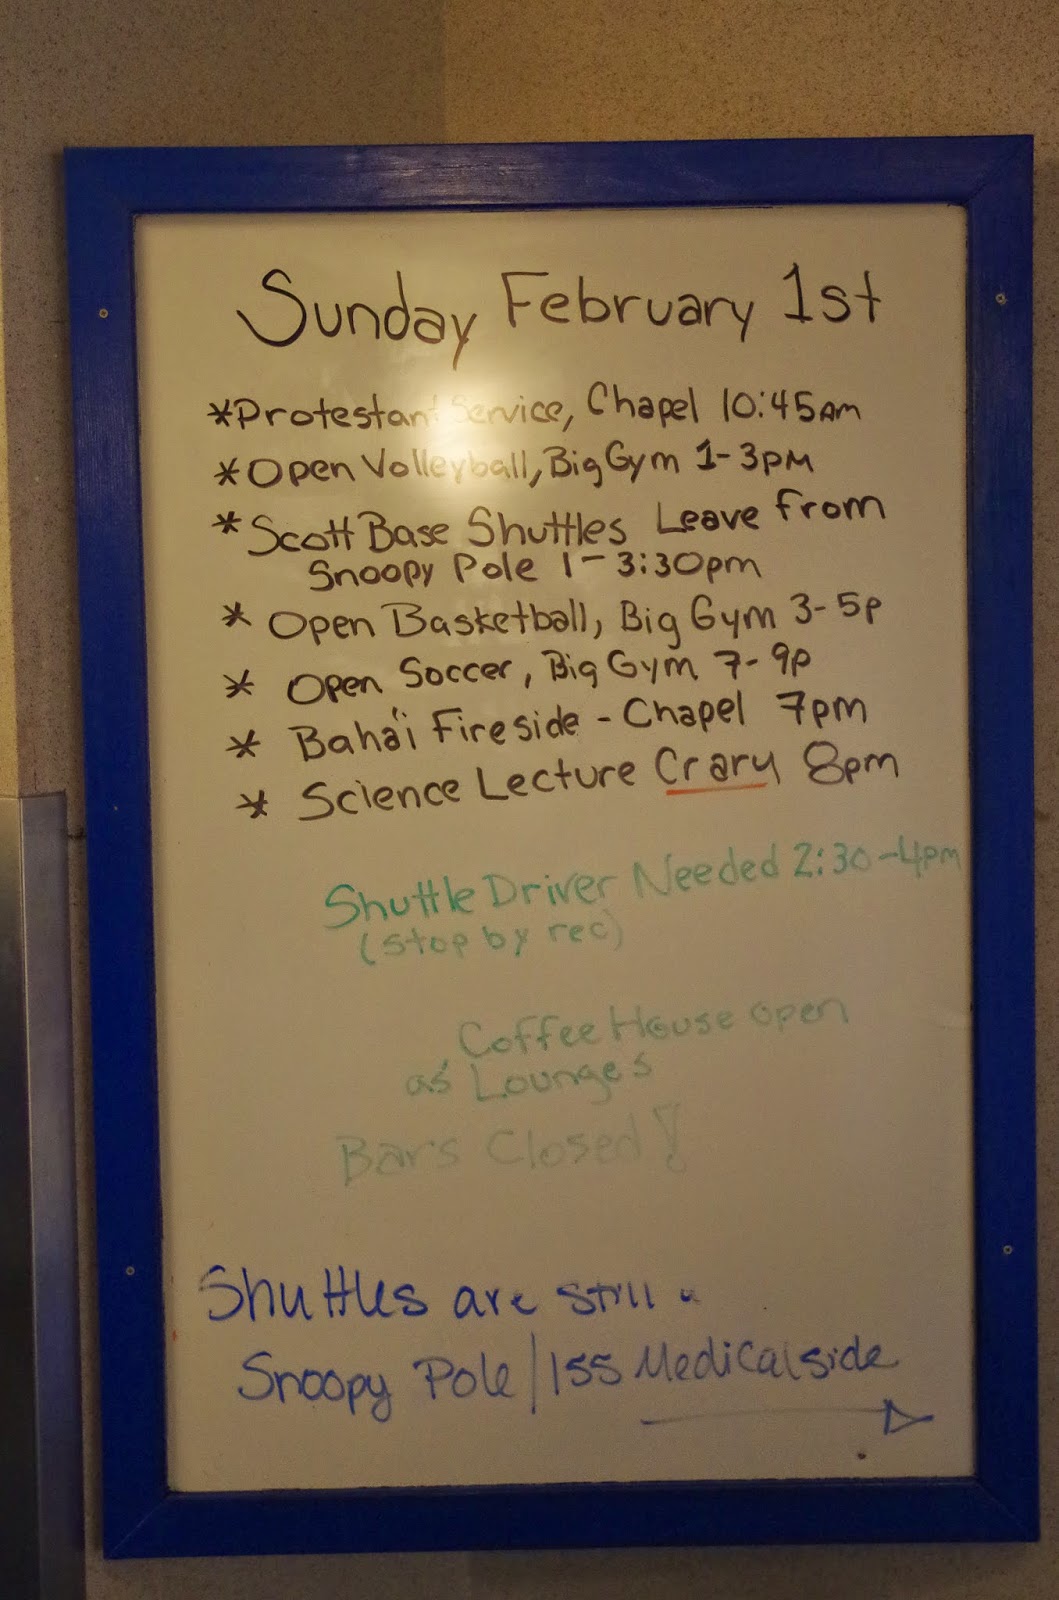 Sunday February 1st
*Protestant Service, Chapel 10:45AM
*Open Volleyball, Big Gym 1-3PM
*Scott Base Shuttles Leave From
Snoopy Pole 1-3:30pm
* Open Basketball, Big Gym 3-5p
* Open Soccer, Big Gym 7-9p
* Bahá'i Fireside - Chapel 7pm
* Science Lecture Crary 8pm
Shuttle Driver Needed 2:30-4pm
(stop by rec)
Coffee House open
as Lounges
Bars Closed!
Shuttles are still
Snoopy Pole/155 Medical side